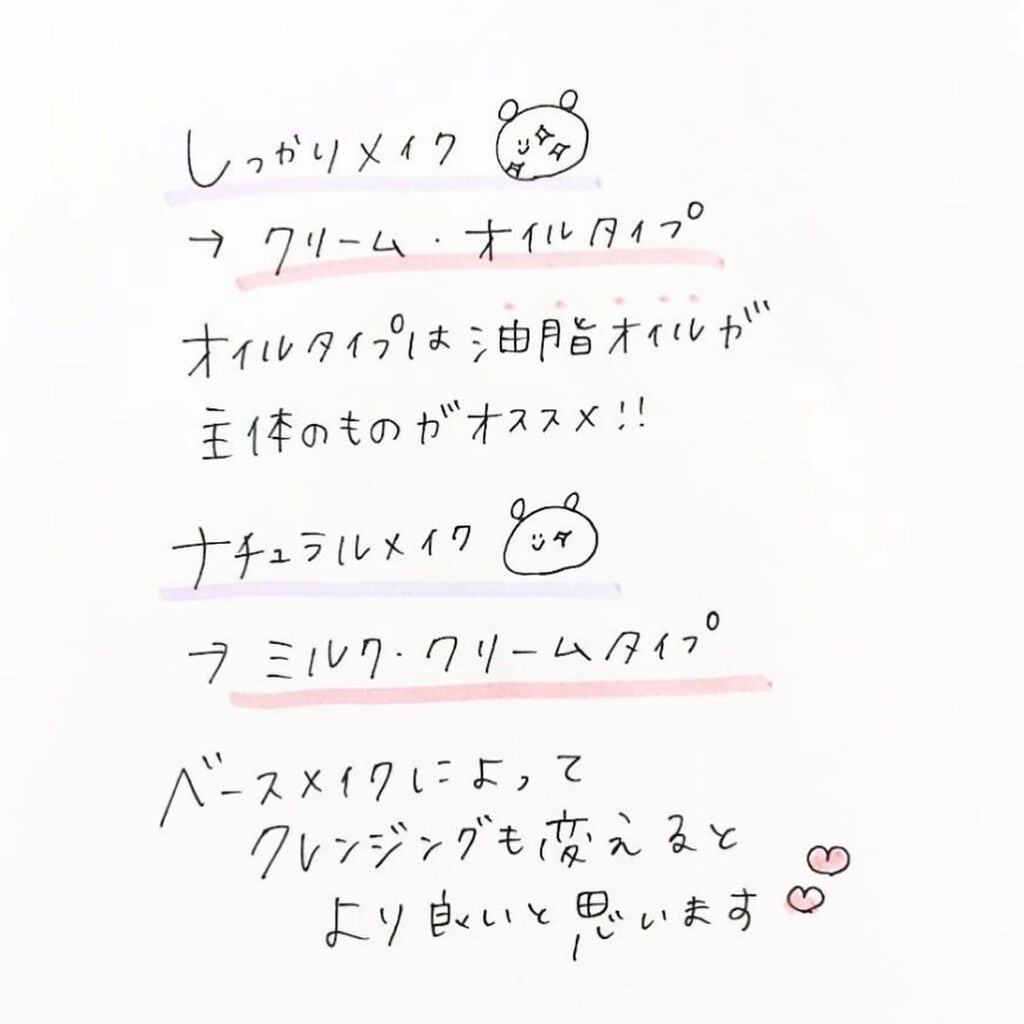 しっかりメイク
→ クリーム・オイルタイプ
オイルタイプは油脂オイルが
主体のものがオススメ!!
ナチュラルメイク
→ ミルク・クリームタイプ
ベースメイクによって
クレンジングも変えると
より良いと思います